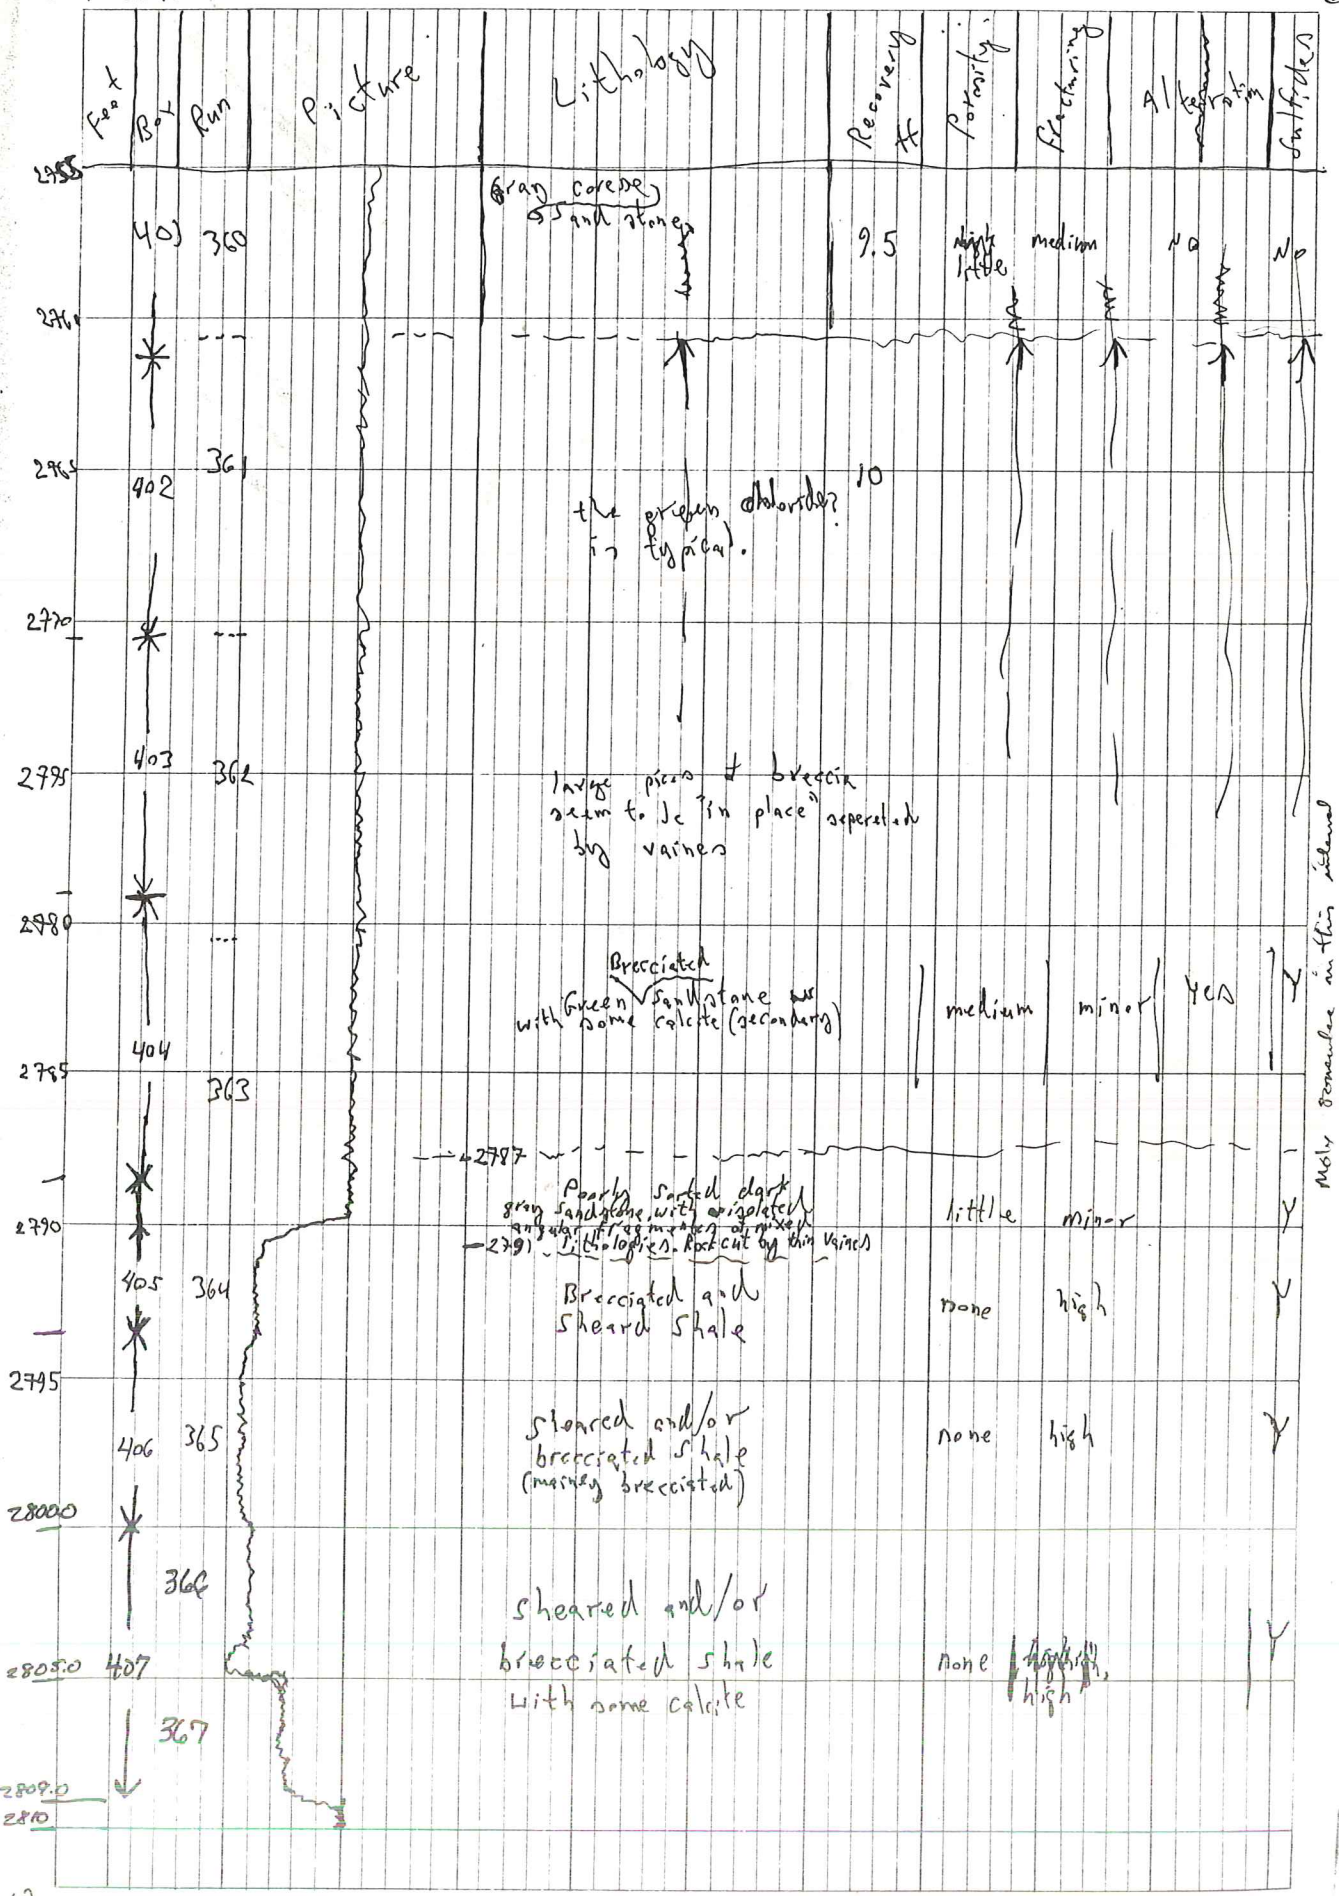 Feet Box Run Picture Lithology Recovery Porosity Fracturing Alteration Sulfides
2755
Gray coresey
Sandstone
403 360 9.5 little medium No No
2760
2765 361
402 10
the green chloride?
is typical.
2770
403
2795 362
large pices of breccia
seem to be "in place" seperated
by vaines
2780
Brecciated
Green Sandstone
with some calcite (secondary)
medium minor Yes Y
404
2785
363
2787
Poorly sorted dark
gray sandstone with isolated
angular fragments of mixed
lithologies. Rock cut by thin vaines
little minor Y
2790
2791
405 364
Brecciated and
Sheard Shale
none high Y
2795
406 365
sheared and/or
brecciated shale
(mainey brecciated)
none high Y
2800.0
366
sheared and/or
brecciated shale
with some calcite
none high Y
2805.0 407
367
2809.0
2810
Moly in this interval